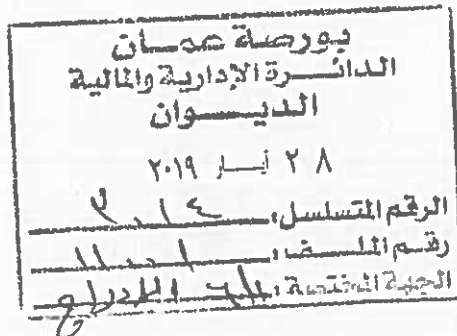 بورصة عمان
الدائرة الإدارية والمالية
الديوان
٢٨ أيار ٢٠١٩
الرقم المتسلسل:
رقم الملف:
الجهة المختصة: